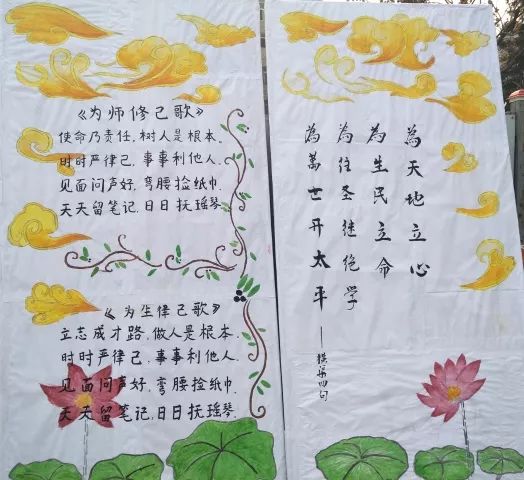 《为师修己歌》
使命乃责任,树人是根本.
时时严律己,事事利他人.
见面问声好,弯腰捡纸巾.
天天留笔记,日日抚瑶琴.
《为生律己歌》
立志成才路,做人是根本.
时时严律己,事事利他人.
见面问声好,弯腰捡纸巾.
天天留笔记,日日抚瑶琴.
為天地立心
為生民立命
為往圣继绝学
為萬世开太平——横渠四句